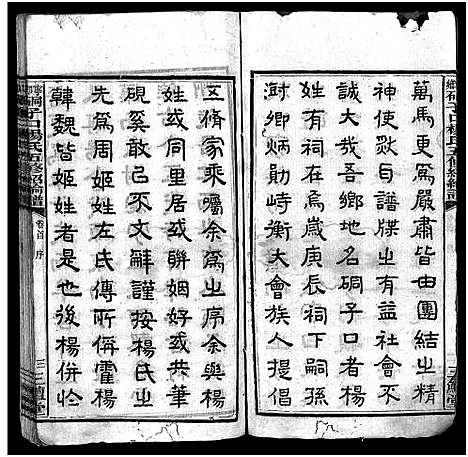 萬馬更為嚴肅皆由團結之精
神使然自譜牒之有益社會不
亦大哉吾鄉地名硐子口者楊
姓有祠在焉歲庚辰祠下嗣孫
澍卿炳勛峙衡大會族人提倡
五脩家乘囑余為之序余與楊
姓或同里居或聯姻好或共筆
硯奚敢以不文辭謹按楊氏之
先為周姬姓左氏傳所偁霍楊
韓魏皆姬姓者是也後楊併於
硐子口楊氏五修
卷首 序
三鱣堂